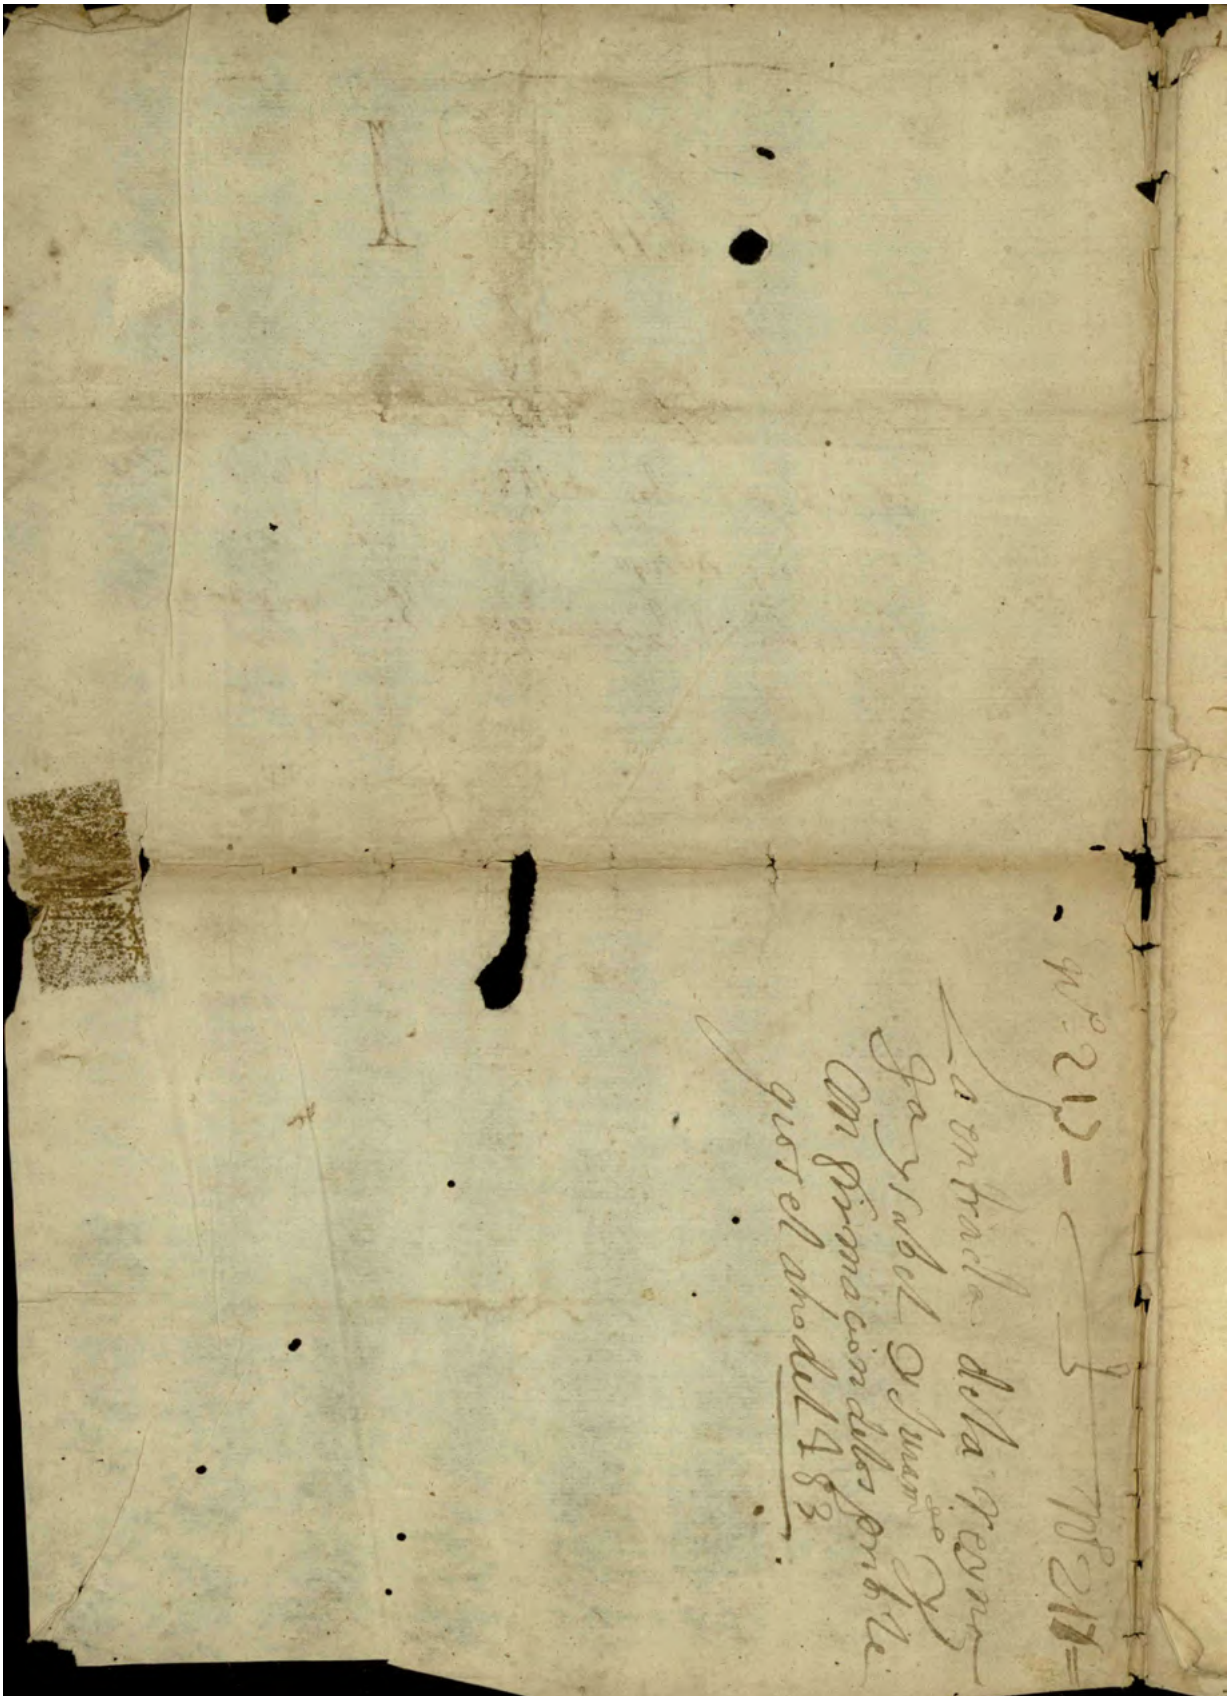 La entrada dela reyna
Doña ysabel y Juram.to y
Confirmacion delos pribile
gios el año del 483
I